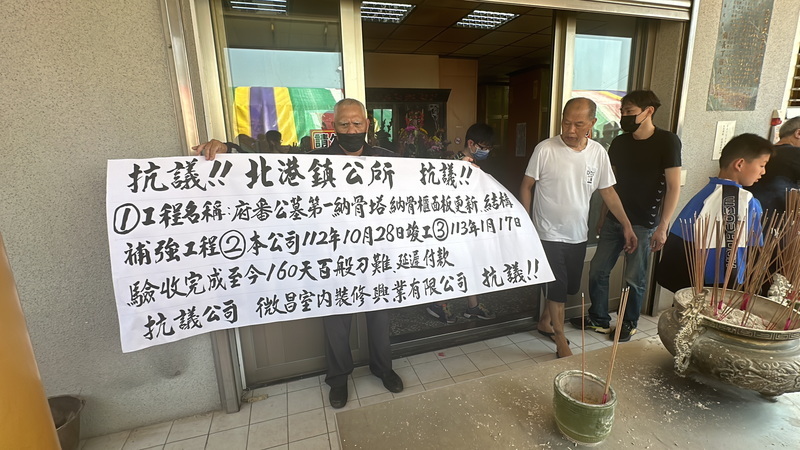 抗議!! 北港鎮公所 抗議!!
①工程名稱:府番公墓第一納骨塔納骨櫃面板更新、結構
補強工程②本公司112年10月28日竣工③113年1月17日
驗收完成至今160天百般刁難、延遲付款
抗議公司 微昌室內裝修興業有限公司 抗議!!